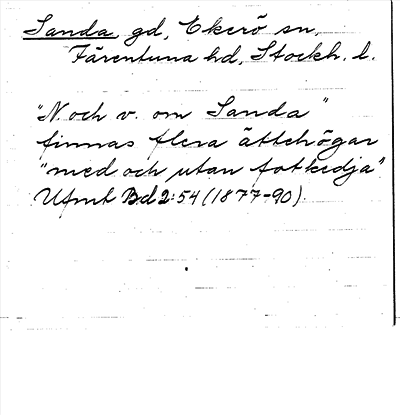 Sanda gd, Ekerö sn,
Färentuna hd, Stockh. l.
"N. och v. om Sanda"
finnas flera ättehögar
"med och utan fotkedja".
Ufmt Bd 2:54 (1877-90).